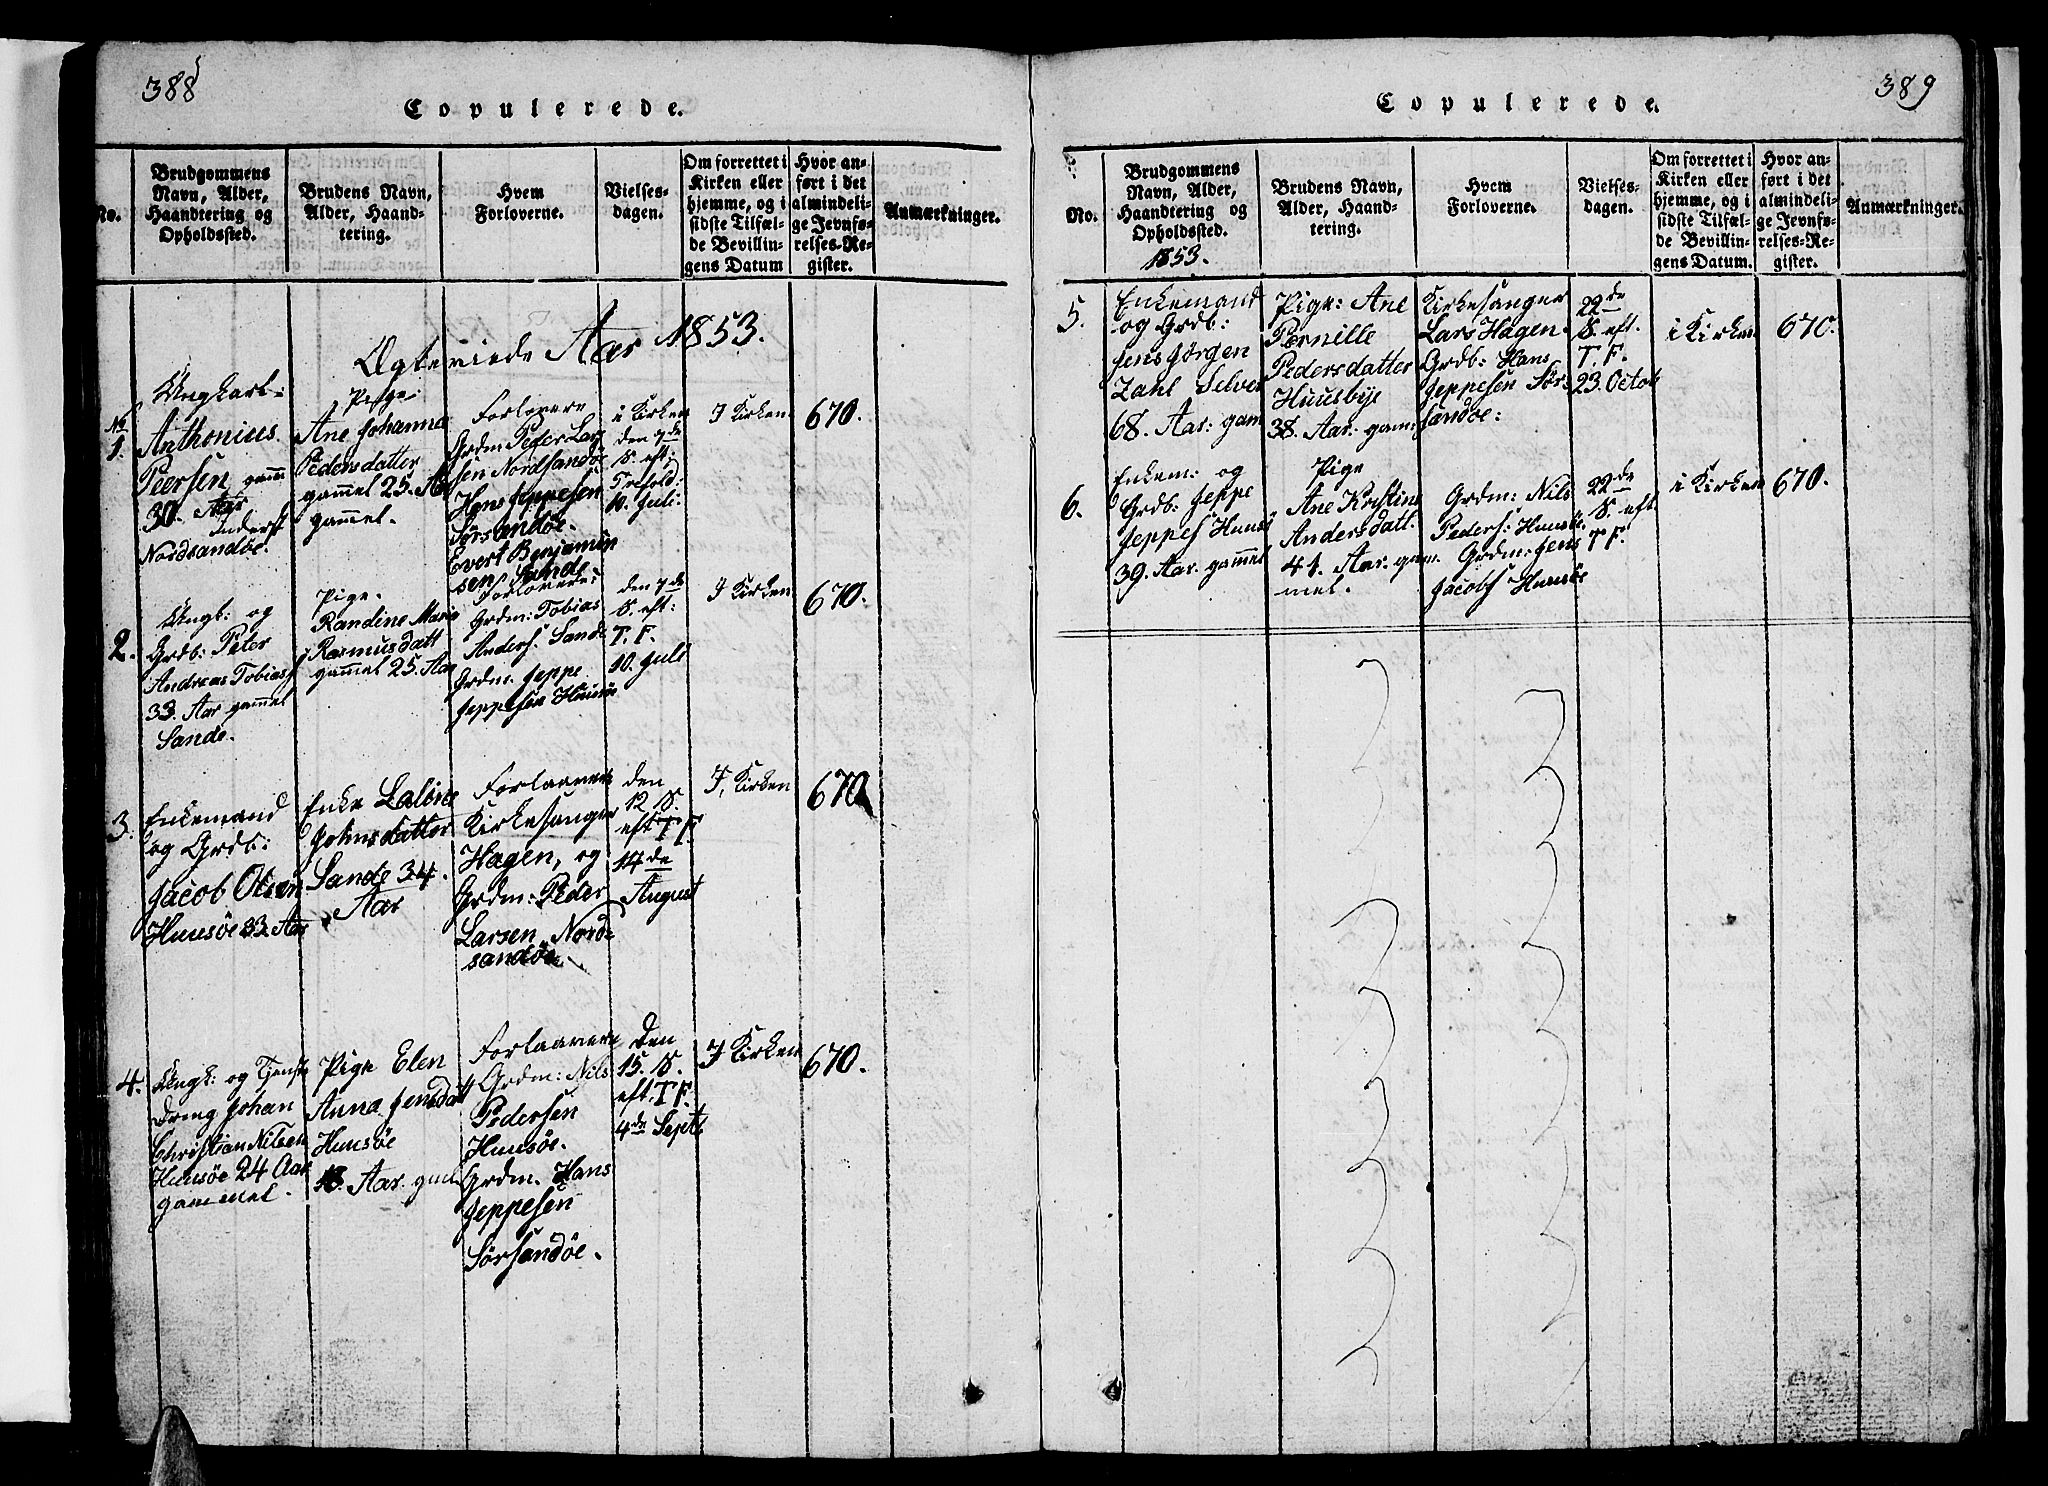 388
Copulerede.
No.
Brudgommens
Navn, Alder,
Haandtering og
Opholdssted.
Brudens Navn,
Alder, Haand-
tering.
Hvem
Forloverne.
Vielses-
dagen.
Om forrettet i
Kirken eller
hjemme, og i
sidste Tilfæl-
de Bevillin-
gens Datum
Hvor an-
ført i det
almindeli-
ge Jevnfø-
relses-Re-
gister.
Anmærkninger.
Ægteviede Aar 1853.
No
1.
Ungkarl:
Anthonius
Peersen gamm
30. Aar
Inderst
Nordsandøe.
Pige:
Ane Johanna
Pedersdatter
gammel 25. Aar
gammel.
Forlovere
Grdm: Peder Lar
sen Nordsandøe
Hans Jeppesen
Sørsandøe.
Evert Benjamin
sen, Sande
i Kirken
den 7de
S. eft;
Trefold:
10. Juli:
I Kirken
670.
2.
Ungk: og
Grdb: Peter
Andreas Tobiasf
33. Aar gammel
Sande.
Pige.
Randine Marie
Rasmusdatt
gammel 25. Aar
Forlovere:
Grdm: Tobias
Anders: Sande
Grdm. Jeppe
Jeppesen Huusøe
den 7de
S. eft:
T. F.
10. Juli
I Kirken
670.
3.
Enkemand
og Grdb:
Jacob Olsen
Huusøe 33. Aar
Enke Lalöne
Johnsdatter
Sande 34.
Aar
Forlaavere
Kirkesanger
Hagen, og
Grdm: Peder
Larsen, Nord-
sandøe.
den
12 S.
eft T F.
14de
August
I, Kirken
670
4.
Ungk: og Tjeneste
dreng Johan
Christian Nilsen
Huusøe 24 Aar
gammel.
Pige Elen
Anna Jensdatt
Huusøe
18. Aar. gml.
Forlaavere
Grdm: Nils
Pedersen
Huusøe.
Grdm. Hans
Jeppesen
Sørsandøe.
den
15. S.
eft. T F.
4de Septb
I Kirken
670.
389
Copulerede.
No.
Brudgommens
Navn, Alder,
Haandtering og
Opholdssted.
1853.
Brudens Navn,
Alder, Haand-
tering.
Hvem
Forloverne.
Vielses-
dagen.
Om forrettet i
Kirken eller
hjemme, og i
sidste Tilfæl-
de Bevillin-
gens Datum.
Hvor an-
ført i det
almindeli-
ge Jevnfø-
relses-Re-
gister.
Anmærkninger.
5.
Enkemand
og Grdb:
Jens Jörgen
Zahl Selvær
68. Aar: gam
Pige: Ane
Pernille
Pedersdatter
Huusbye
38. Aar: gam:
Kirkesanger
Lars Hagen.
Grdb: Hans
Jeppesen Sørs
sandøe:
22de
S. eft.
T. F.
23. Octob
i Kirken
670.
6.
Enkem: og
Grdb: Jeppe
Jeppes Huusø
39. Aar. gammel
Pige
Ane Kristine
Andersdatt.
41. Aar. gam
mel.
Grdm: Nils
Peders: Huusøe.
Grdm: Jens
Jacobs Huusøe
22de
S. eft.
T F.
i Kirken
670.